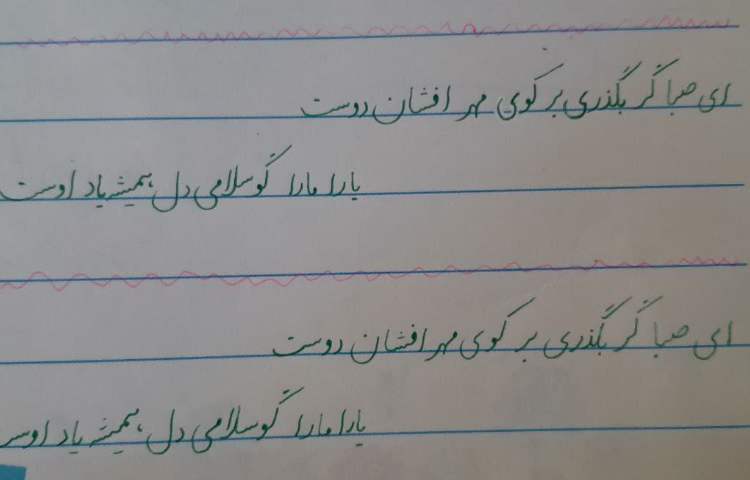 ای صبا گر بگذری بر کوی مهر افشان دوست
یارا مارا گو سلامی دل همیشه یاد اوست
ای صبا گر بگذری بر کوی مهر افشان دوست
یارا مارا گو سلامی دل، همیشه یاد اوس